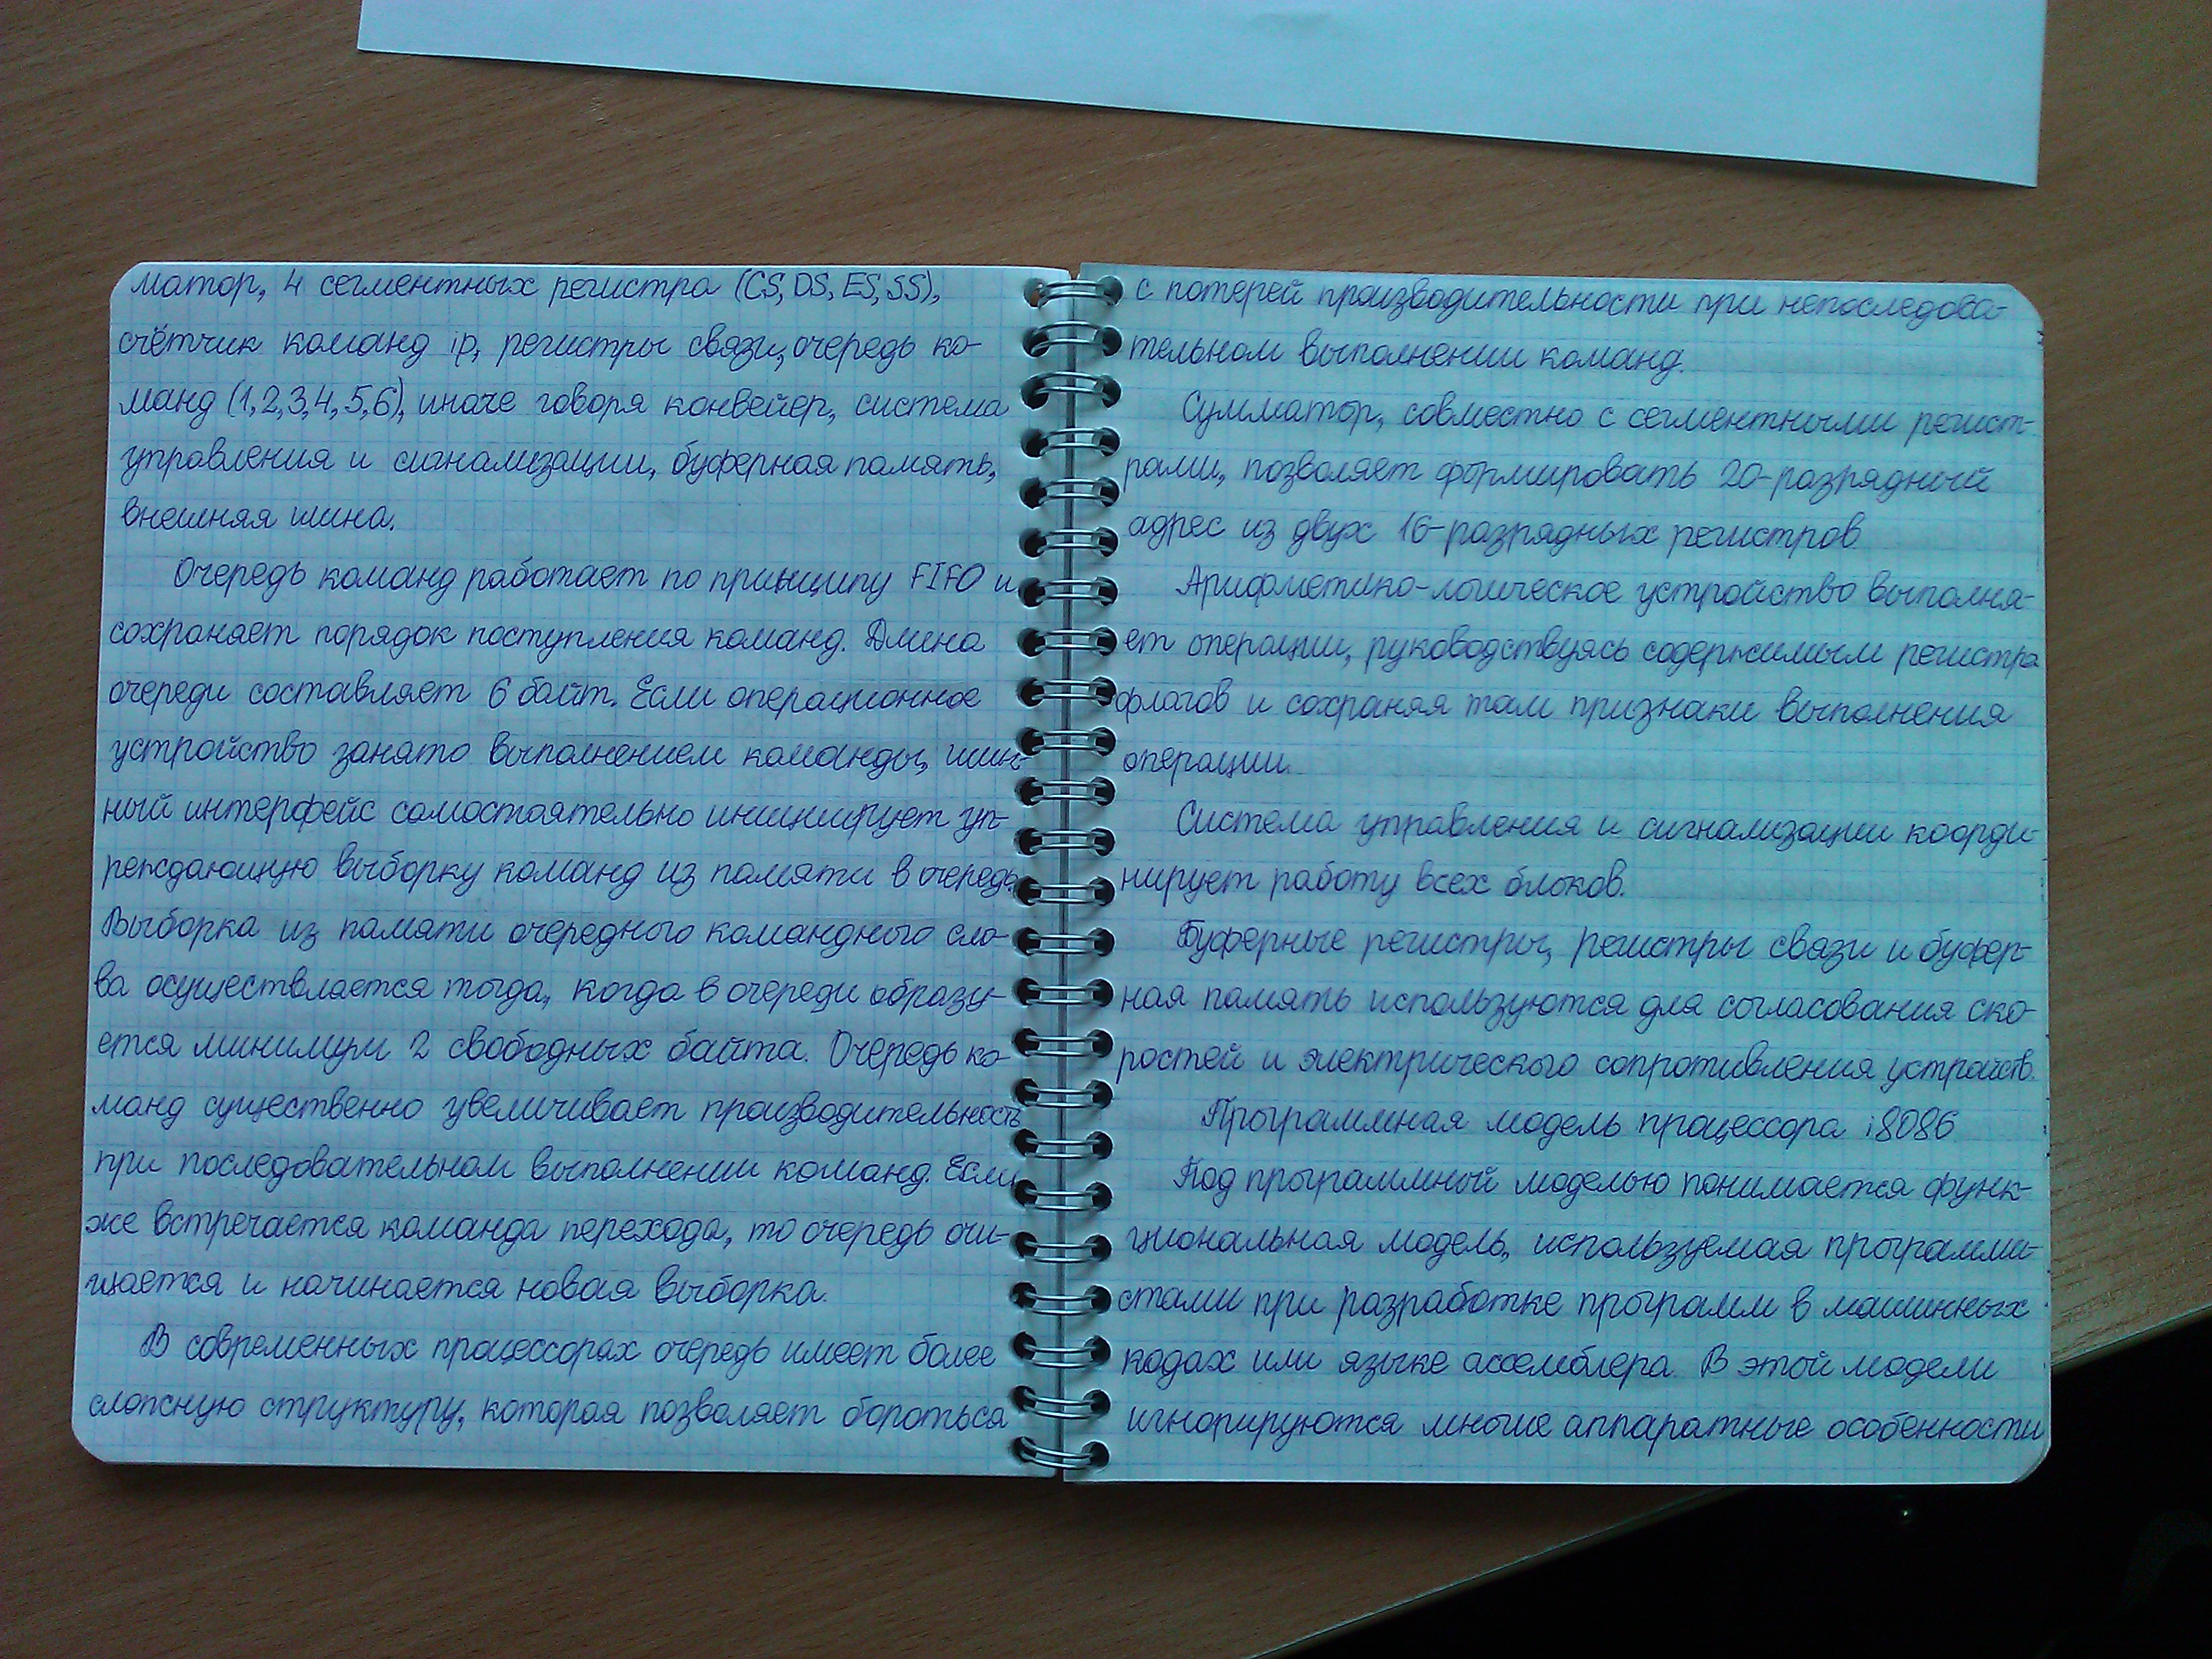 матор, 4 сегментных регистра (CS, DS, ES, SS),
счётчик команд ip, регистры связи, очередь ко-
манд (1,2,3,4,5,6), иначе говоря конвейер, система
управления и сигнализации, буферная память,
внешняя шина.
Очередь команд работает по принципу FIFO и
сохраняет порядок поступления команд. Длина
очереди составляет 6 байт. Если операционное
устройство занято выполнением команды, шин-
ный интерфейс самостоятельно инициирует уп-
реждающую выборку команд из памяти в очередь.
Выборка из памяти очередного командного сло-
ва осуществляется тогда, когда в очереди образу-
ется минимум 2 свободных байта. Очередь ко-
манд существенно увеличивает производительность
при последовательном выполнении команд. Если
же встречается команда перехода, то очередь очи-
щается и начинается новая выборка.
В современных процессорах очередь имеет более
сложную структуру, которая позволяет бороться
с потерей производительности при непоследова-
тельном выполнении команд.
Сумматор, совместно с сегментными регист-
рами, позволяет формировать 20-разрядный
адрес из двух 16-разрядных регистров.
Арифметико-логическое устройство выполня-
ет операции, руководствуясь содержимым регистра
флагов и сохраняя там признаки выполнения
операции.
Система управления и сигнализации коорди-
нирует работу всех блоков.
Буферные регистры, регистры связи и буфер-
ная память используются для согласования ско-
ростей и электрического сопротивления устройств.
Программная модель процессора i8086
Под программной моделью понимается функ-
циональная модель, используемая программи-
стами при разработке программ в машинных
кодах или языке ассемблера. В этой модели
игнорируются многие аппаратные особенности